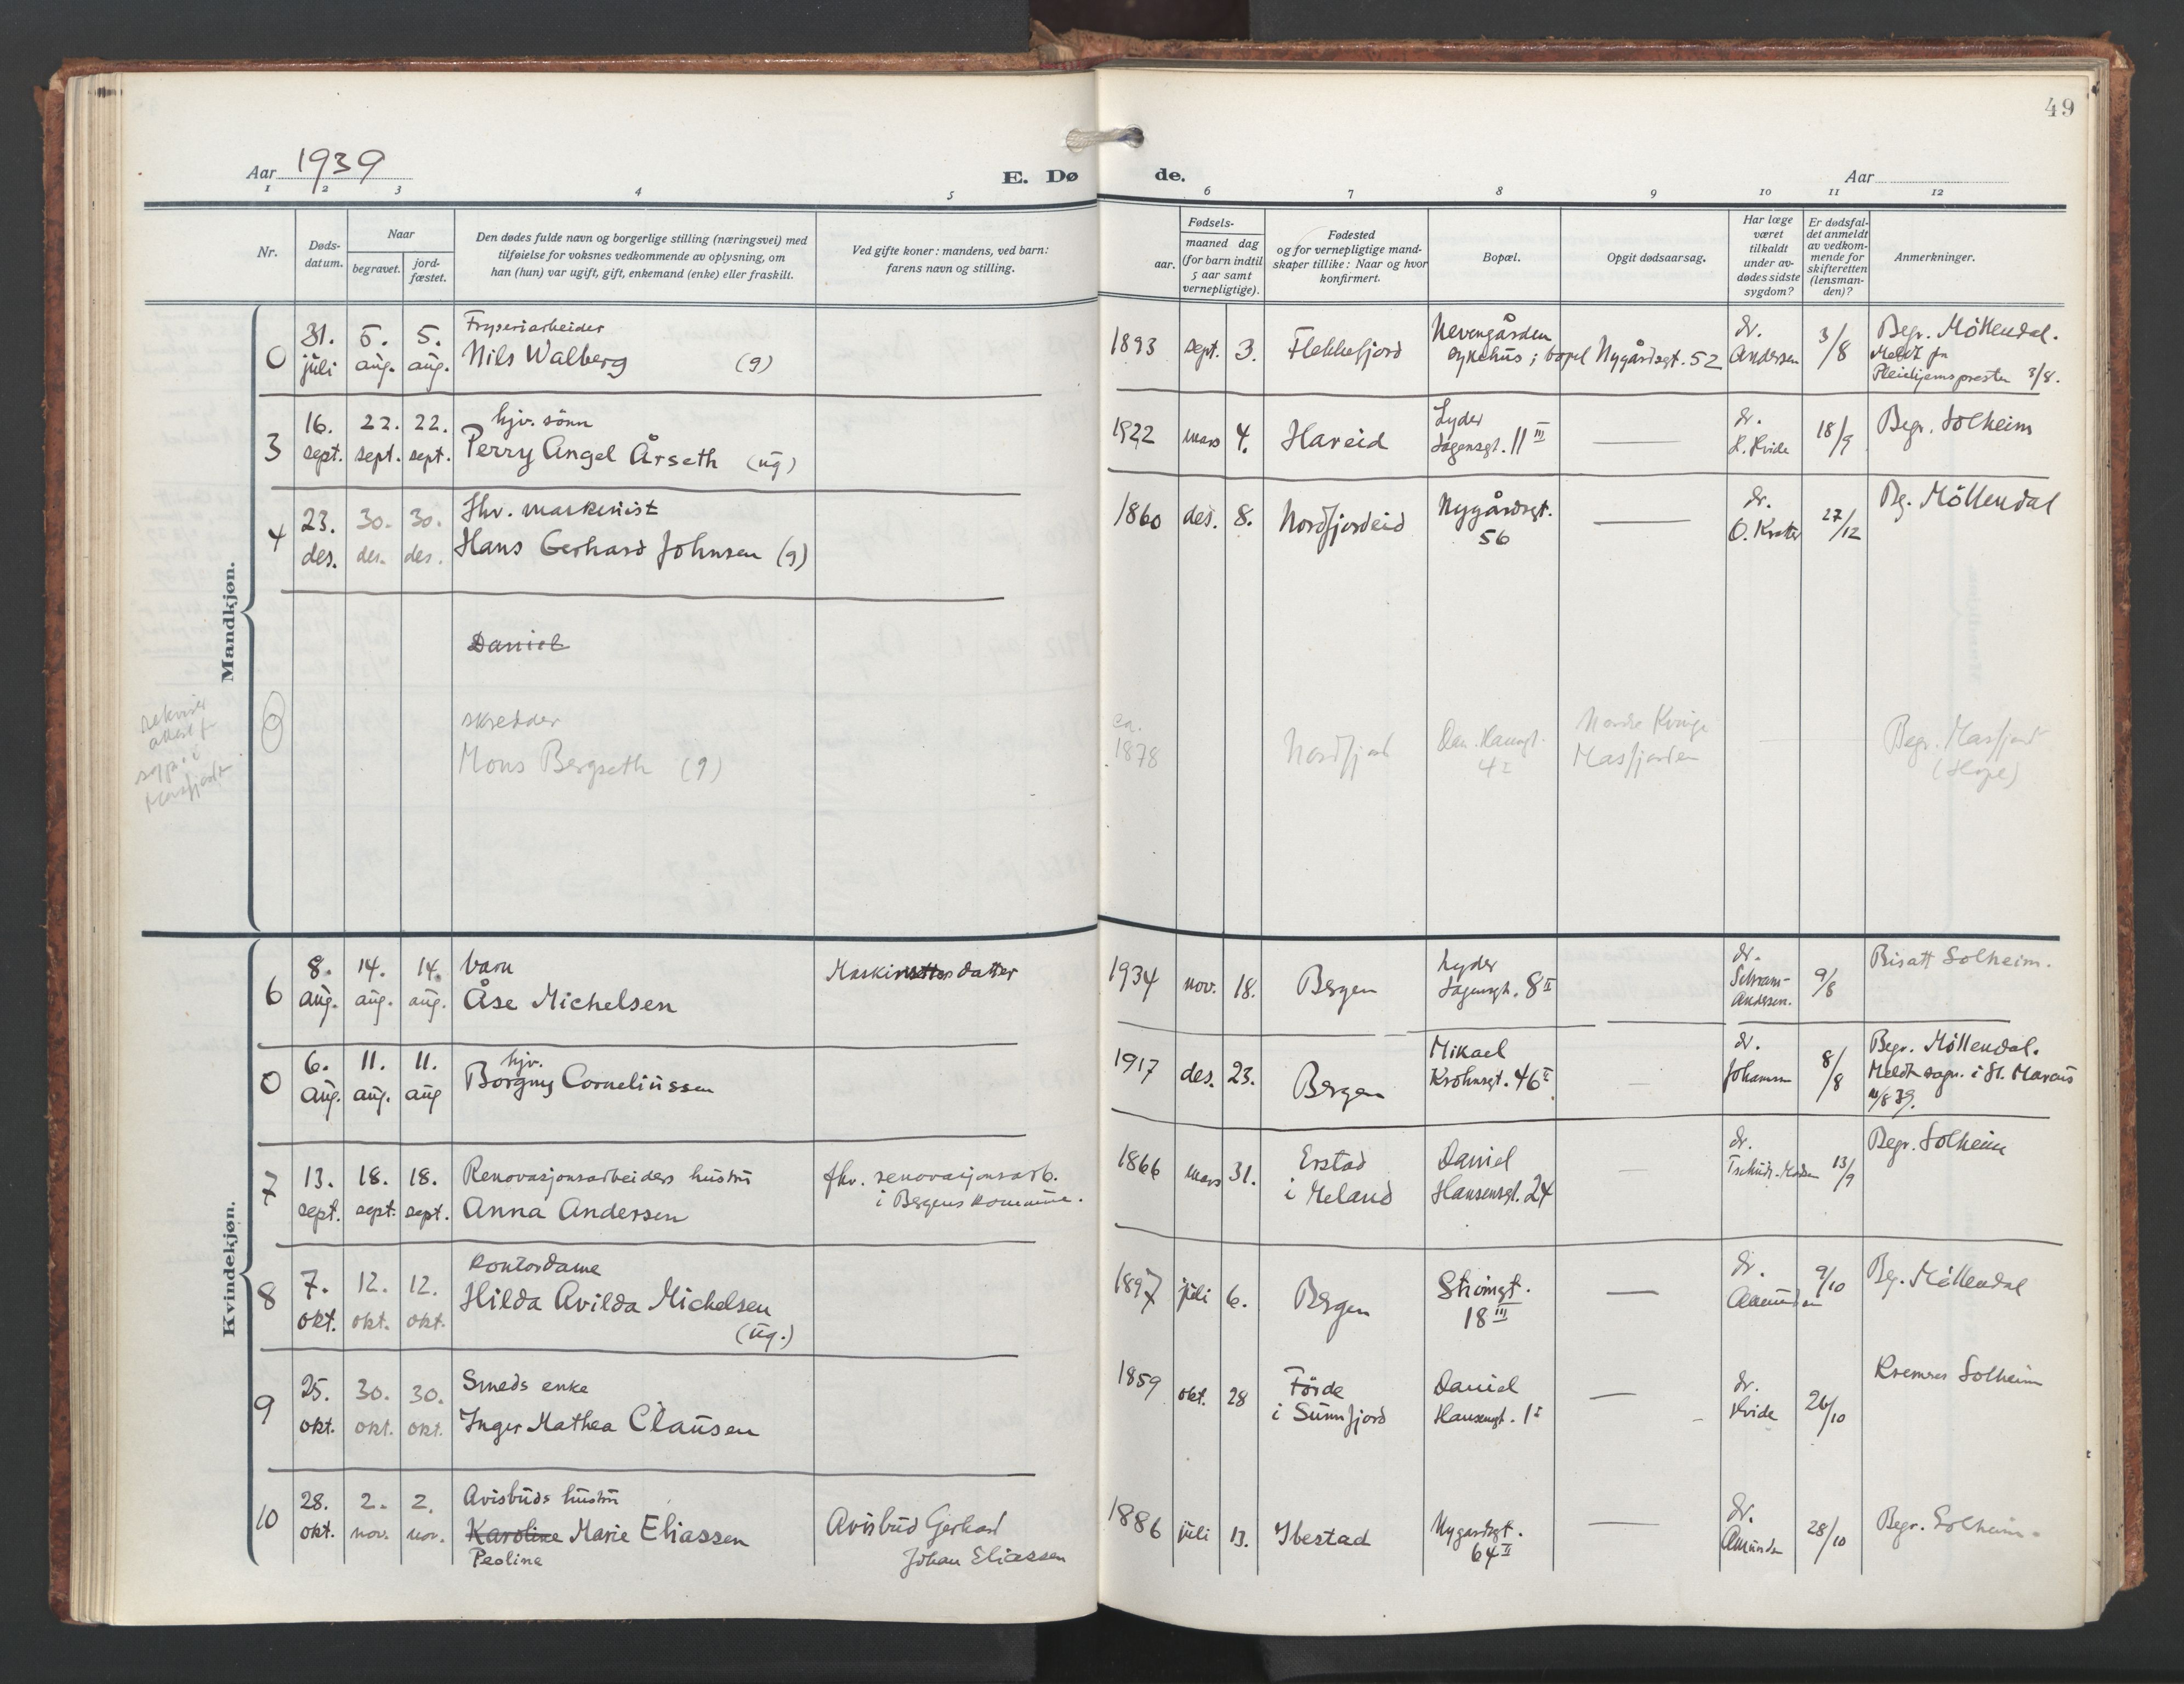 49
Aar 1939
E. Dø
de.
Aar
1 2 3 4 5 6 7 8 9 10 11 12
Nr.
Døds-
datum.
Naar
begravet.
jord-
fæstet.
Den dødes fulde navn og borgerlige stilling (næringsvei) med
tilføielse for voksnes vedkommende av oplysning, om
han (hun) var ugift, gift, enkemand (enke) eller fraskilt.
Ved gifte koner: mandens, ved barn:
farens navn og stilling.
Fødsels-
aar.
maaned dag
(for barn indtil
5 aar samt
vernepligtige).
Fødested
og for vernepligtige mand-
skaper tillike: Naar og hvor
konfirmert.
Bopæl.
Opgit dødsaarsag.
Har læge
været
tilkaldt
under av-
dødes sidste
sygdom?
Er dødsfal-
det anmeldt
av vedkom-
mende for
skifteretten
(lensman-
den)?
Anmerkninger.
Mandkjøn.
0
31.
juli
5.
aug.
5.
aug.
Fryseriarbeider
Nils Walberg (g)
1893
sept. 3.
Flekkefjord
Nevengården
sykehus; bopel Nygårdsgt. 52
dr.
Andersen
3/8
Begr. Möllendal.
Meldt fra
Pleiehjemspresten 3/8.
3
16.
sept.
22.
sept.
22.
sept.
hjv. sönn
Perry Angel Årseth (ug)
1922
mars 4.
Hareid
Lyder
Sagensgt. 11 III
dr.
H. Hvide
18/9
Begr. Solheim
4
23.
des.
30.
des.
30.
des.
Fhv. maskinist
Hans Gerhard Johnsen (g)
1860
des. 8.
Nordfjordeid
Nygårdsgt.
56
dr.
27/12
Bg. Möllendal
Daniel
0
skredder
Mons Bergseth (g)
ca.
1878
Nordfjord
Dan. Hansgt.
Masfjorden
Begr. Masfjord
(Hope)
Kvindekjøn.
6
8.
aug.
14.
aug.
14.
aug.
barn
Åse Michelsen
datter
1934
nov. 18.
Bergen
Lyder
Sagensgt. 8 II
dr.
Andersen.
9/8
Bisatt Solheim.
0
6.
aug.
11.
aug.
11.
aug
hjv.
Borgny Corneliussen
1917
des. 23.
Bergen
Mikael
Krohnsgt. 46 I
dr.
Johannsen
8/8
Begr. Möllendal.
Meldt sogn. i St. Marcus
11/8 39.
7
13.
sept.
18.
sept.
18.
sept.
Renovasjonsarbeiders hustru
Anna Andersen
fhv. renovasjonsarb.
i Bergens kommune.
1866
mars 31.
Erstad
i Meland
Daniel
Hansensgt. 24
dr.
13/9
Begr. Solheim
8
7.
okt.
12.
okt.
12.
okt.
Kontordame
Hilda Avilda Michelsen
(ug.)
1897
juli 6.
Bergen
Strömgt.
18 III
dr.
Amundsen
9/10
Bg. Möllendal
9
25.
okt.
30.
okt.
30.
okt.
Smeds enke
Inger Mathea Clausen
1859
okt. 28
Förde
i Sunnfjord
Daniel
Hansensgt. 1 I
dr.
Hvide
26/10
Kremeres Solheim
10
28.
okt.
2.
nov.
2.
nov.
Avisbuds hustru
Karoline Marie Eliassen
Peoline
Avisbud Gerhard
Johan Eliassen
1886
juli 13.
Ibestad
Nygardsgt.
64 II
dr.
Amunds
28/10
Begr. Solheim.